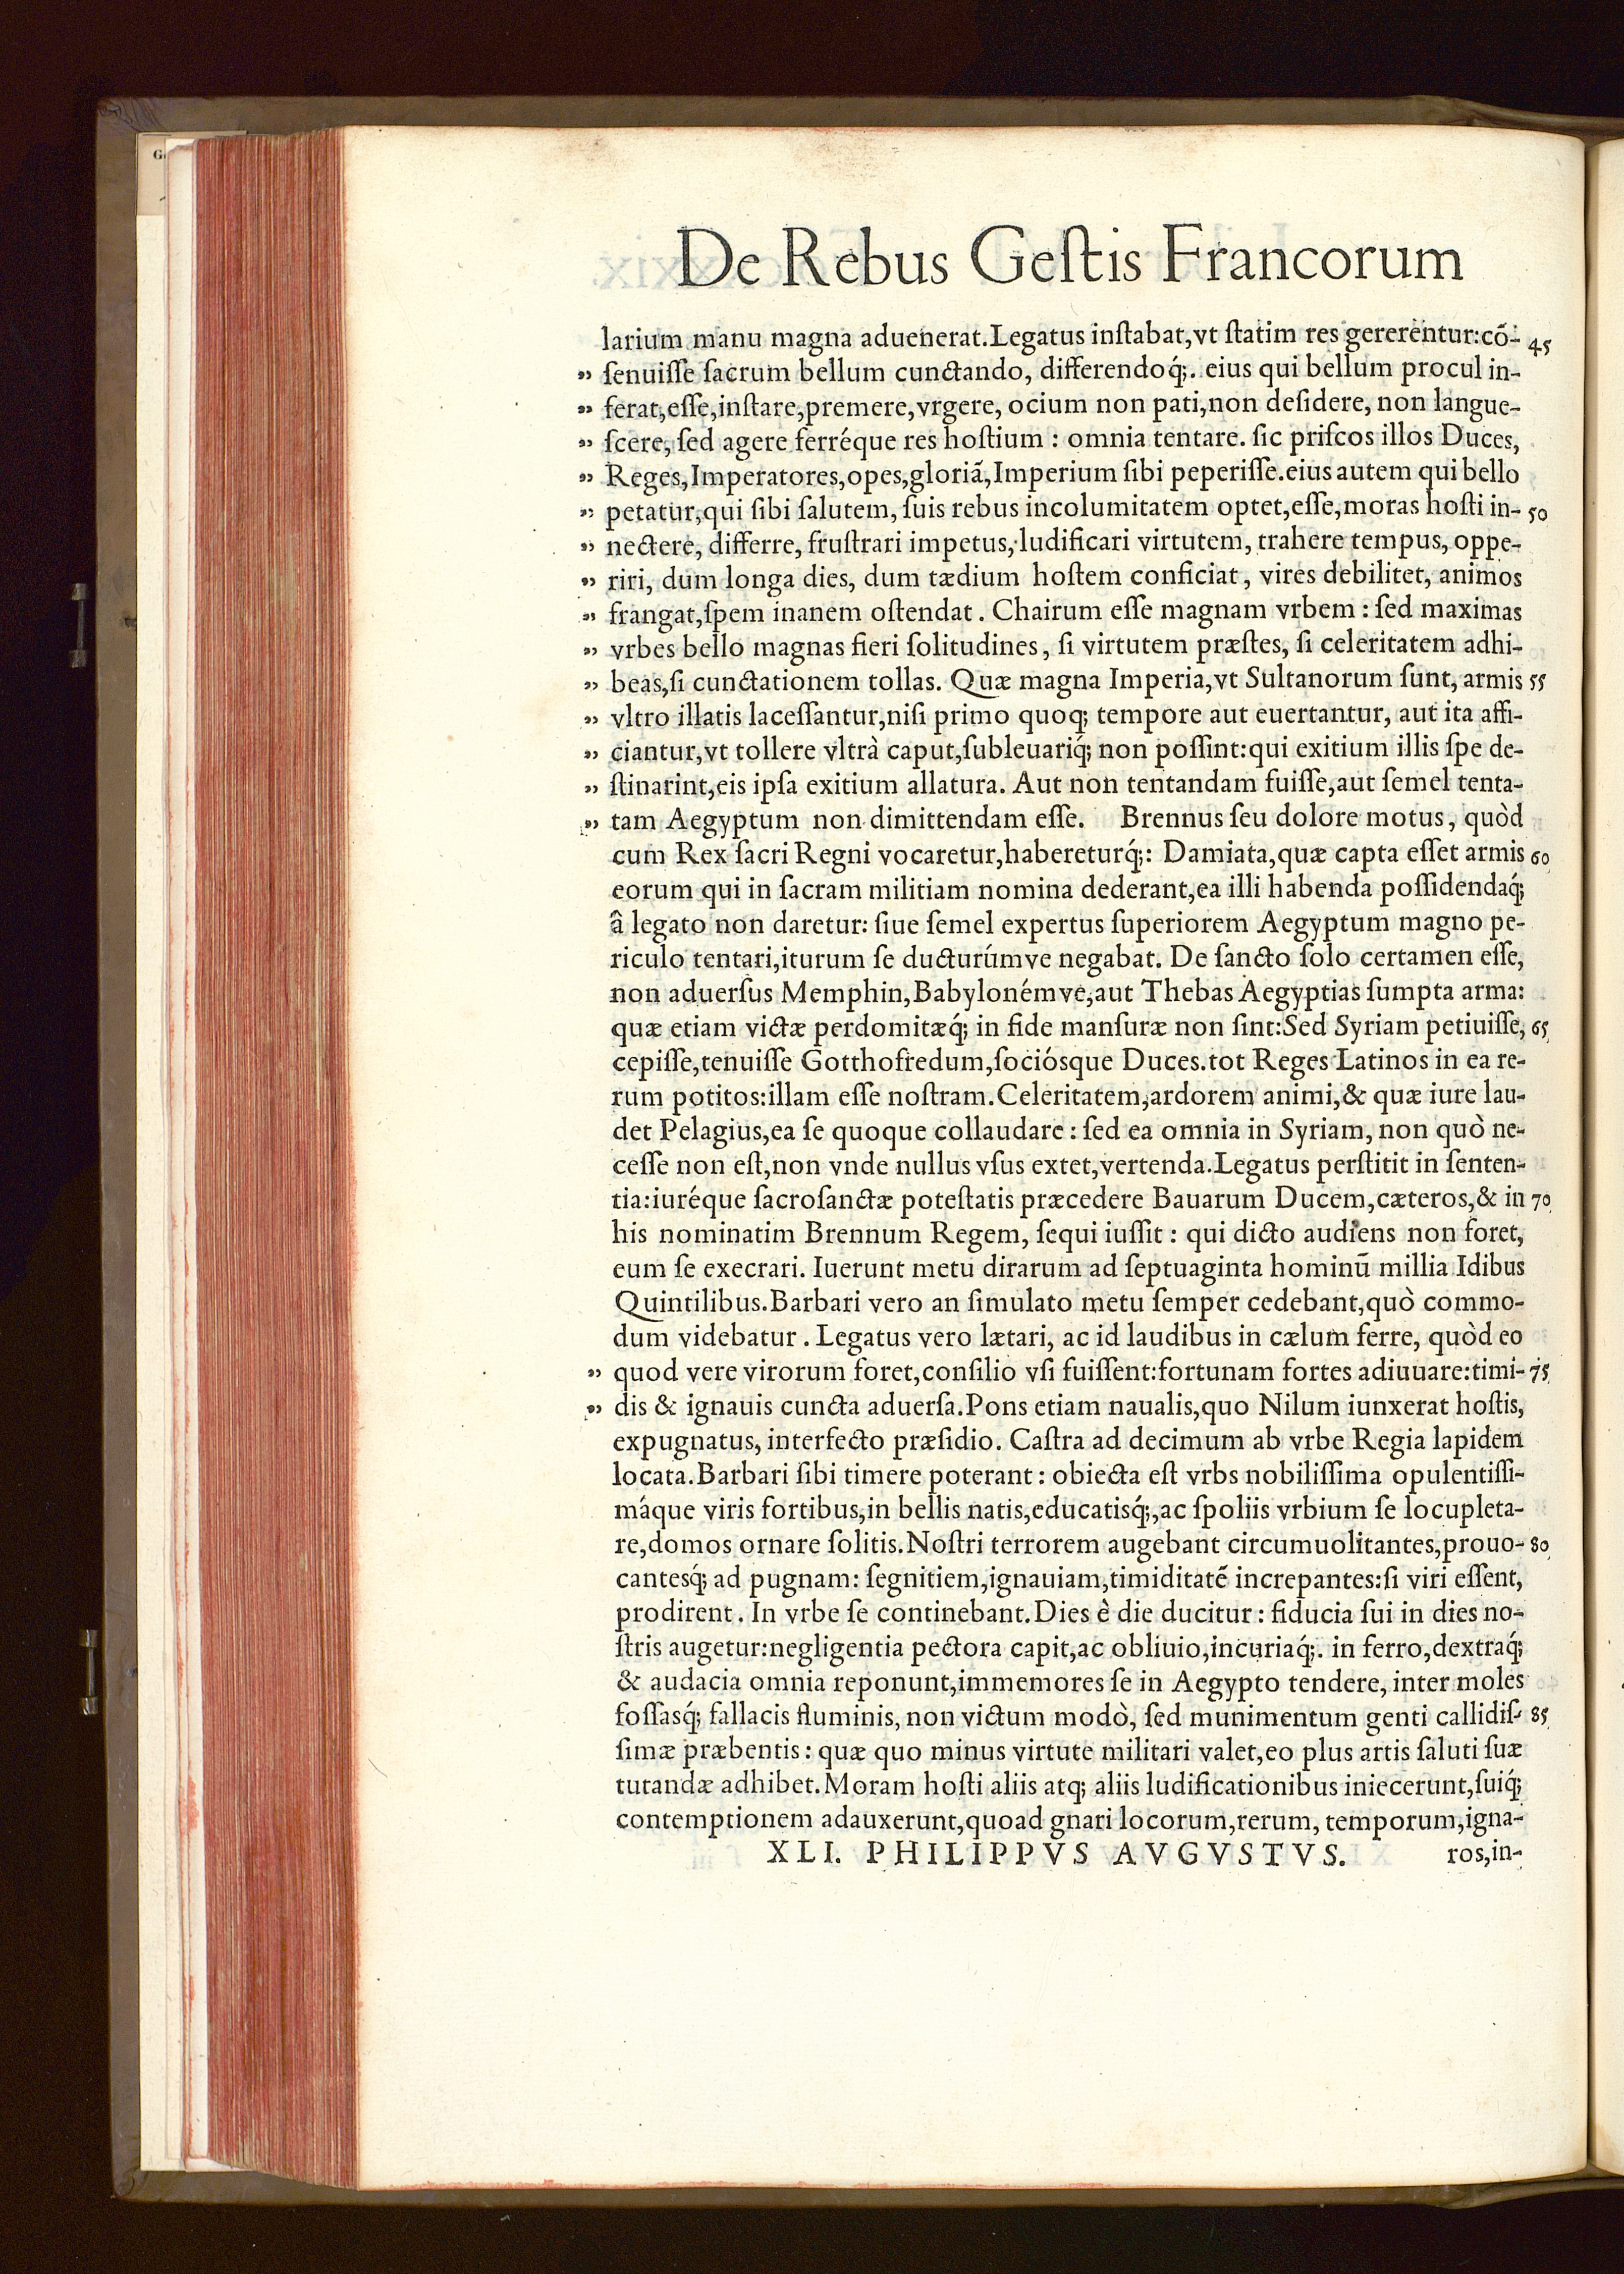 De Rebus Geſtis Francorum
larium manu magna aduenerat.Legatus inſtabat,vt ſtatim res gererentur:cõ- 45
„ ſenuiſſe ſacrum bellum cunctando, differendoq́;. eius qui bellum procul in-
„ ferat,eſſe,inſtare,premere,vrgere, ocium non pati,non deſidere, non langue-
„ ſcere, ſed agere ferréque res hoſtium : omnia tentare. ſic priſcos illos Duces,
„ Reges,Imperatores,opes,gloriã,Imperium ſibi peperiſſe.eius autem qui bello
„ petatur,qui ſibi ſalutem, ſuis rebus incolumitatem optet,eſſe,moras hoſti in- 50
„ nectere, differre, fruſtrari impetus, ludificari virtutem, trahere tempus, oppe-
„ riri, dum longa dies, dum tædium hoſtem conficiat, vires debilitet, animos
„ frangat,ſpem inanem oſtendat. Chairum eſſe magnam vrbem : ſed maximas
„ vrbes bello magnas fieri ſolitudines, ſi virtutem præſtes, ſi celeritatem adhi-
„ beas,ſi cunctationem tollas. Quæ magna Imperia,vt Sultanorum ſunt, armis 55
„ vltro illatis laceſſantur,niſi primo quoq; tempore aut euertantur, aut ita affi-
„ ciantur,vt tollere vltrà caput,ſubleuariq́; non poſſint:qui exitium illis ſpe de-
„ ſtinarint,eis ipſa exitium allatura. Aut non tentandam fuiſſe,aut ſemel tenta-
„ tam Aegyptum non dimittendam eſſe. Brennus ſeu dolore motus, quòd
cum Rex ſacri Regni vocaretur,habereturq́;: Damiata,quæ capta eſſet armis 60
eorum qui in ſacram militiam nomina dederant,ea illi habenda poſſidendaq́;
â legato non daretur: ſiue ſemel expertus ſuperiorem Aegyptum magno pe-
riculo tentari,iturum ſe ducturúmve negabat. De ſancto ſolo certamen eſſe,
non aduerſus Memphin,Babylonémve,aut Thebas Aegyptias ſumpta arma:
quæ etiam victæ perdomitæq́; in fide manſuræ non ſint:Sed Syriam petiuiſſe, 65
cepiſſe,tenuiſſe Gotthofredum,ſociósque Duces.tot Reges Latinos in ea re-
rum potitos:illam eſſe noſtram.Celeritatem,ardorem animi,& quæ iure lau-
det Pelagius,ea ſe quoque collaudare : ſed ea omnia in Syriam, non quò ne-
ceſſe non eſt,non vnde nullus vſus extet,vertenda.Legatus perſtitit in ſenten-
tia:iuréque ſacroſanctæ poteſtatis præcedere Bauarum Ducem,cæteros,& in 70
his nominatim Brennum Regem, ſequi iuſſit : qui dicto audiens non foret,
eum ſe execrari. Iuerunt metu dirarum ad ſeptuaginta hominũ millia Idibus
Quintilibus.Barbari vero an ſimulato metu ſemper cedebant,quò commo-
dum videbatur. Legatus vero lætari, ac id laudibus in cælum ferre, quòd eo
„ quod vere virorum foret,conſilio vſi fuiſſent:fortunam fortes adiuuare:timi- 75
„ dis & ignauis cuncta aduerſa.Pons etiam naualis,quo Nilum iunxerat hoſtis,
expugnatus, interfecto præſidio. Caſtra ad decimum ab vrbe Regia lapidem
locata.Barbari ſibi timere poterant : obiecta eſt vrbs nobiliſſima opulentiſſi-
máque viris fortibus,in bellis natis,educatisq́;,ac ſpoliis vrbium ſe locupleta-
re,domos ornare ſolitis.Noſtri terrorem augebant circumuolitantes,prouo- 80
cantesq́; ad pugnam: ſegnitiem,ignauiam,timiditatẽ increpantes:ſi viri eſſent,
prodirent. In vrbe ſe continebant.Dies è die ducitur : fiducia ſui in dies no-
ſtris augetur:negligentia pectora capit,ac obliuio,incuriaq́;. in ferro,dextraq́;
& audacia omnia reponunt,immemores ſe in Aegypto tendere, inter moles
foſſasq́; fallacis fluminis, non victum modò, ſed munimentum genti callidiſ- 85
ſimæ præbentis : quæ quo minus virtute militari valet,eo plus artis ſaluti ſuæ
tutandæ adhibet.Moram hoſti aliis atq; aliis ludificationibus iniecerunt,ſuiq́;
contemptionem adauxerunt,quoad gnari locorum,rerum, temporum,igna-
XLI. PHILIPPVS AVGVSTVS. ros,in-